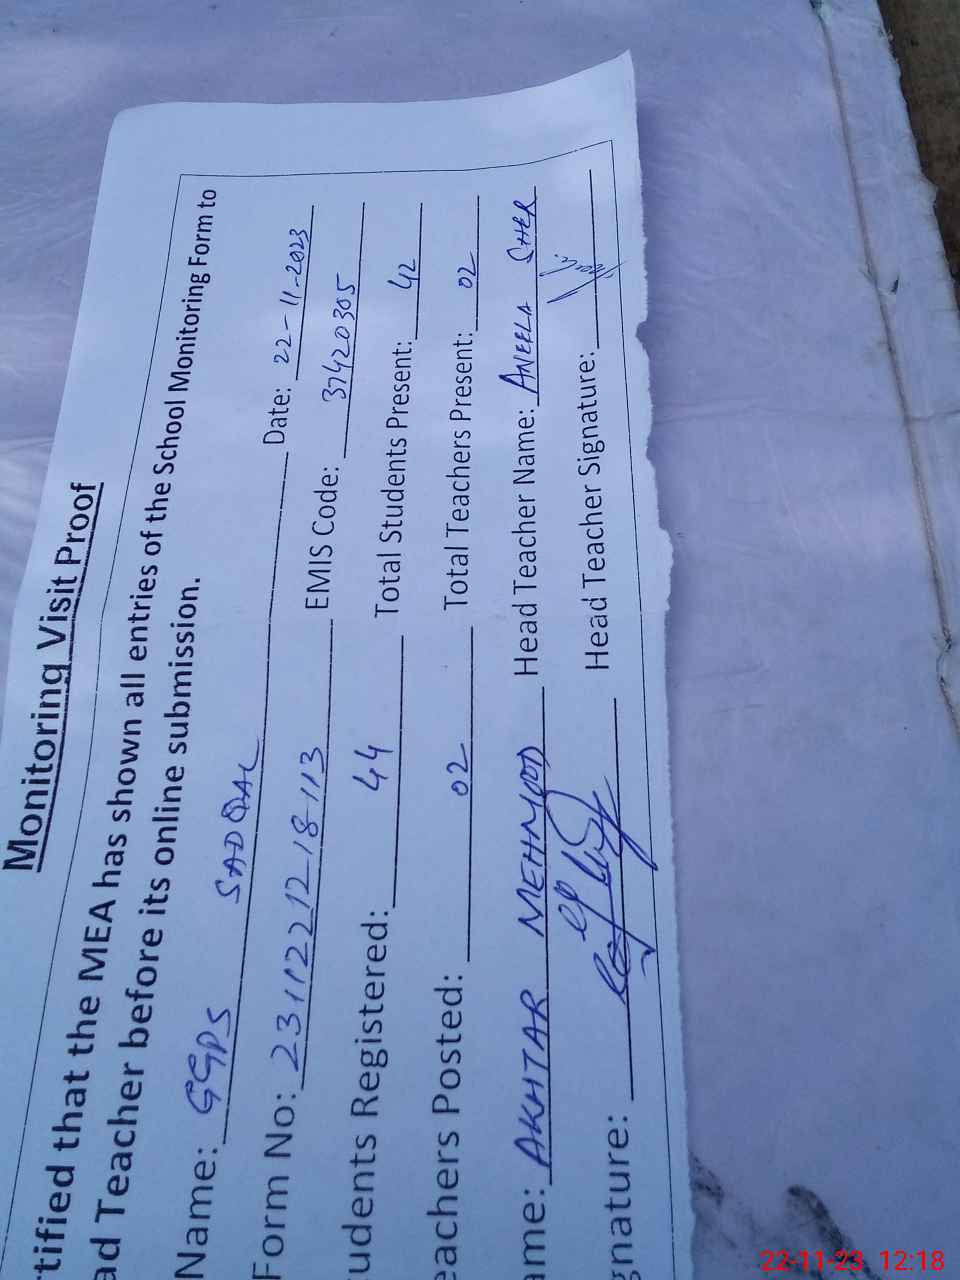 Monitoring Visit Proof
rtified that the MEA has shown all entries of the School Monitoring Form to
ad Teacher before its online submission.
Name: GGPS SADQAL Date: 22-11-2023
Form No: 231122 12-18-113 EMIS Code: 37420305
udents Registered: 44 Total Students Present: 42
eachers Posted: 02 Total Teachers Present: 02
ame: AKHTAR MEHMOOD Head Teacher Name: ANEELA SHER
gnature: Head Teacher Signature:
22-11-23 12:18